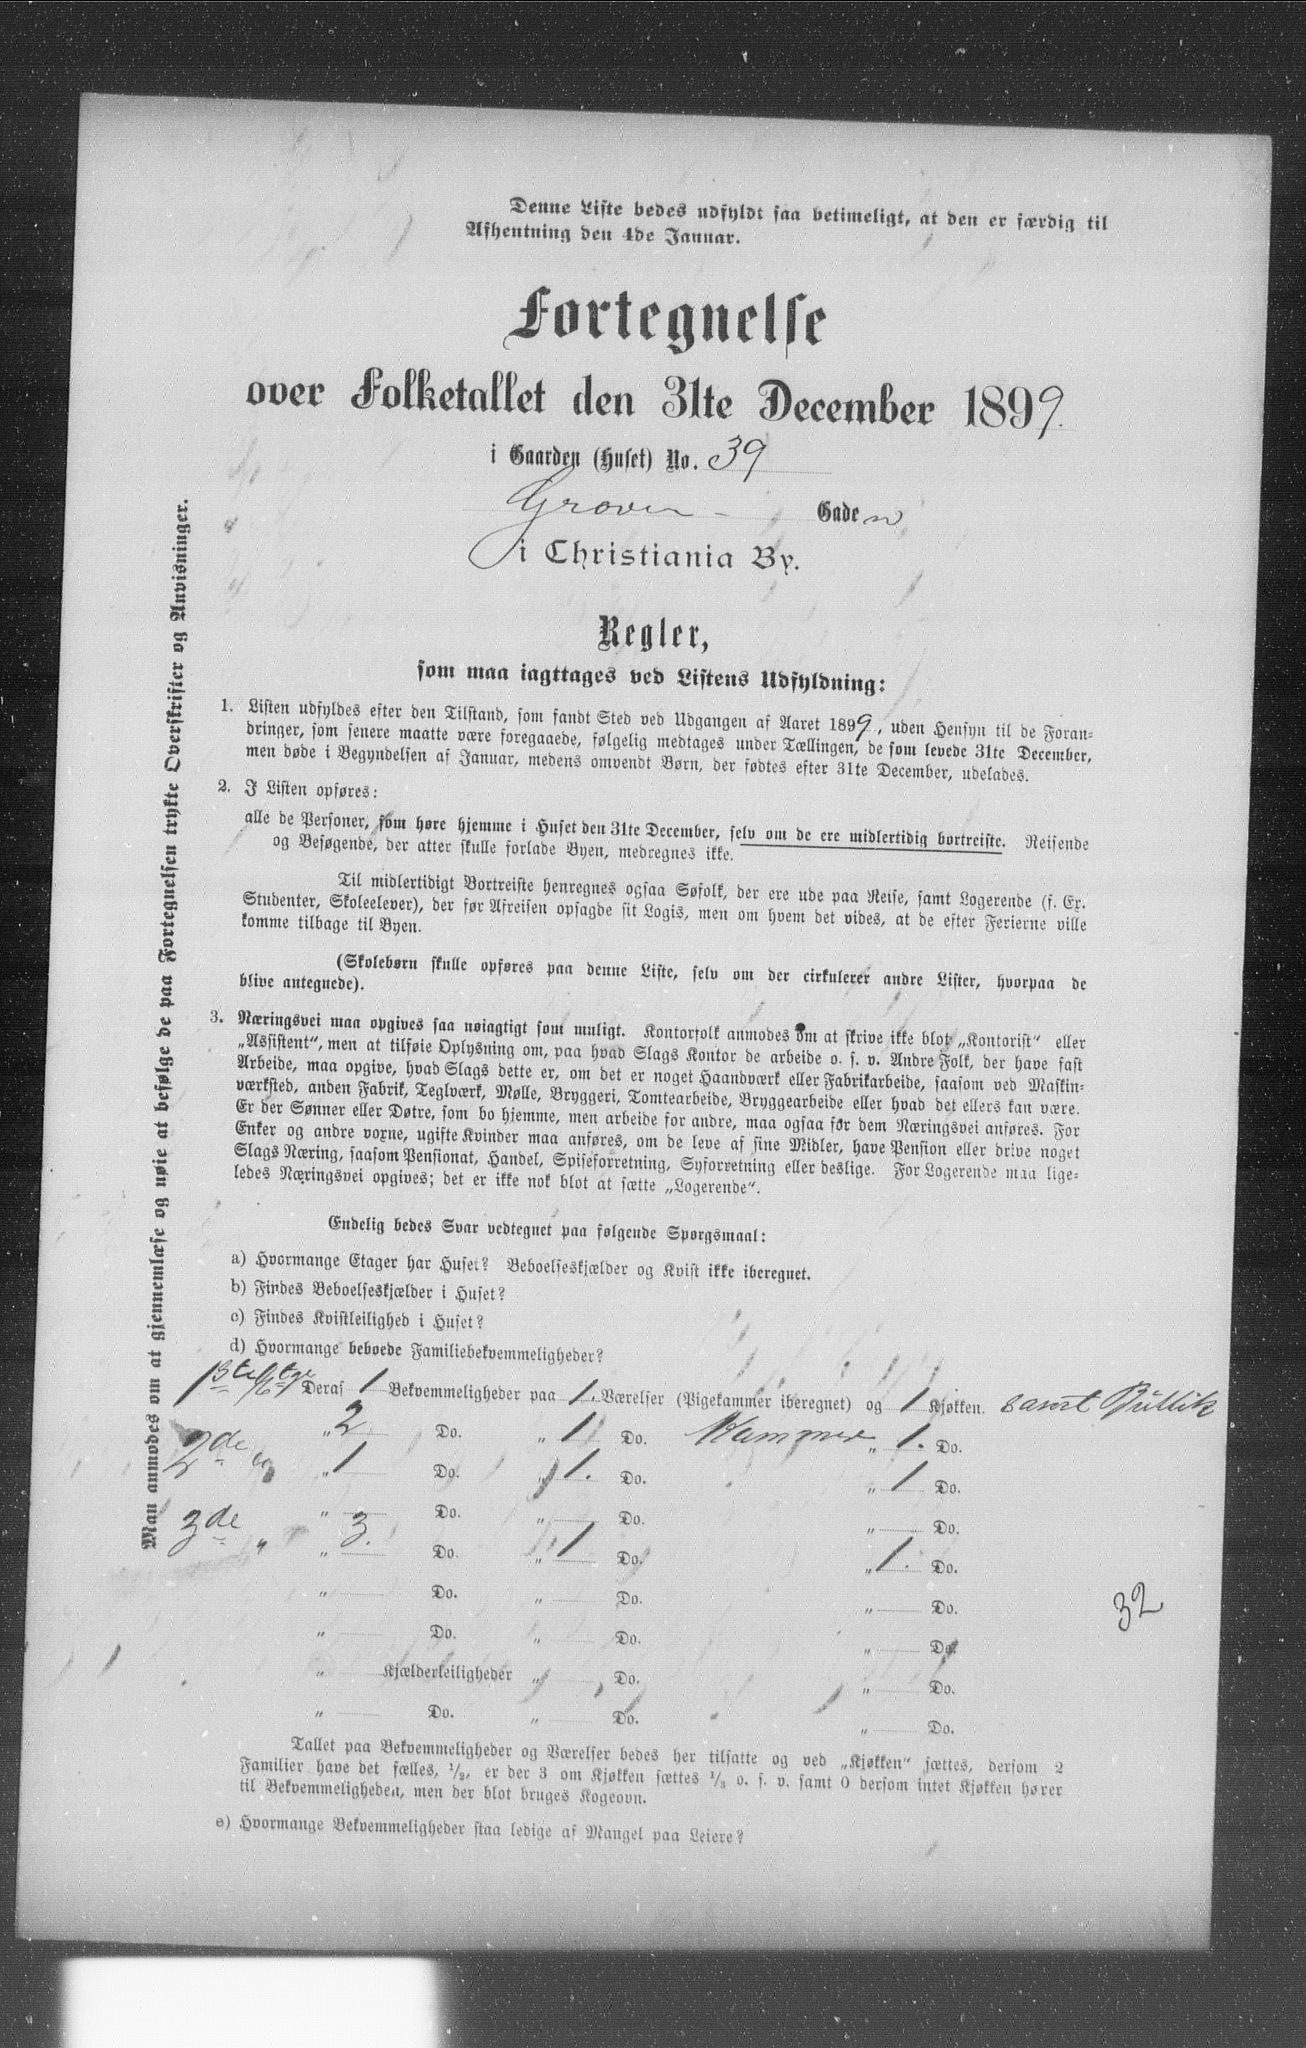 Denne Liste bedes udfyldt saa betimeligt, at den er færdig til
Afhentning den 4de Januar.
Fortegnelse
over Folketallet den 31te December 1899.
i Gaarden (Huset) No. 39
Gade n
i Christiania By.
Regler,
som maa iagttages ved Listens Udfyldning:
1. Listen udfyldes efter den Tilstand, som fandt Sted ved Udgangen af Aaret 1899, uden Hensyn til de Foran-
dringer, som senere maatte være foregaaede, følgelig medtages under Tællingen, de som levede 31te December,
men døde i Begyndelsen af Januar, medens omvendt Børn, der fødtes efter 31te December, udelades.
2. I Listen opføres:
alle de Personer, som høre hjemme i Huset den 31te December, selv om de ere midlertidig bortreiste. Reisende
og Besøgende, der atter skulle forlade Byen, medregnes ikke.
Til midlertidigt Bortreiste henregnes ogsaa Søfolk, der ere ude paa Reise, samt Logerende (f. Ex.
Studenter, Skoleelever), der før Afreisen opsagde sit Logis, men om hvem det vides, at de efter Ferierne ville
komme tilbage til Byen.
(Skolebørn skulle opføres paa denne Liste, selv om der cirkulerer andre Lister, hvorpaa de
blive antegnede).
3. Næringsvei maa opgives saa nøiagtigt som muligt. Kontorfolk anmodes om at skrive ikke blot „Kontorist“ eller
„Assistent“, men at tilføie Oplysning om, paa hvad Slags Kontor de arbeide o. s. v. Andre Folk, der have fast
Arbeide, maa opgive, hvad Slags dette er, om det er noget Haandværk eller Fabrikarbeide, saasom ved Maskin-
værksted, anden Fabrik, Teglværk, Mølle, Bryggeri, Tomtearbeide, Bryggearbeide eller hvad det ellers kan være.
Er der Sønner eller Døtre, som bo hjemme, men arbeide for andre, maa ogsaa for dem Næringsvei anføres. For
Enker og andre voxne, ugifte Kvinder maa anføres, om de leve af sine Midler, have Pension eller drive noget
Slags Næring, saasom Pensionat, Handel, Spiseforretning, Syforretning eller deslige. For Logerende maa lige-
ledes Næringsvei opgives; det er ikke nok blot at sætte „Logerende“.
Endelig bedes Svar vedtegnet paa følgende Spørgsmaal:
a) Hvormange Etager har Huset? Beboelseskjælder og Kvist ikke iberegnet.
b) Findes Beboelseskjælder i Huset?
c) Findes Kvistleilighed i Huset?
d) Hvormange beboede Familiebekvemmeligheder?
1ste Etge Deraf 1 Bekvemmeligheder paa 1. Værelser (Pigekammer iberegnet) og 1 Kjøkken. samt Buttik
„ 2 Do. „ 1 Do. Kammer „ 1. Do.
2de „ „ 1 Do. „ 1. Do. „ 1 Do.
„ Do. „ Do. „ Do.
3de „ „ 3. Do. „ 1 Do. „ 1. Do.
„ Do. „ Do. „ Do.
32
„ Do. „ Do. „ Do.
„ Kjælderleiligheder „ Do. „ Do.
„ Do. „ Do. „ Do.
Tallet paa Bekvemmeligheder og Værelser bedes her tilsatte og ved „Kjøkken“ sættes, dersom 2
Familier have det fælles, 1/2, er der 3 om Kjøkken sættes 1/3 o. s. v. samt 0 dersom intet Kjøkken hører
til Bekvemmeligheden, men der blot bruges Kogeovn.
e) Hvormange Bekvemmeligheder staa ledige af Mangel paa Leiere?
Man anmodes om at gjennemlæse og nøie at befølge de paa Fortegnelsen trykte Overskrifter og Anvisninger.